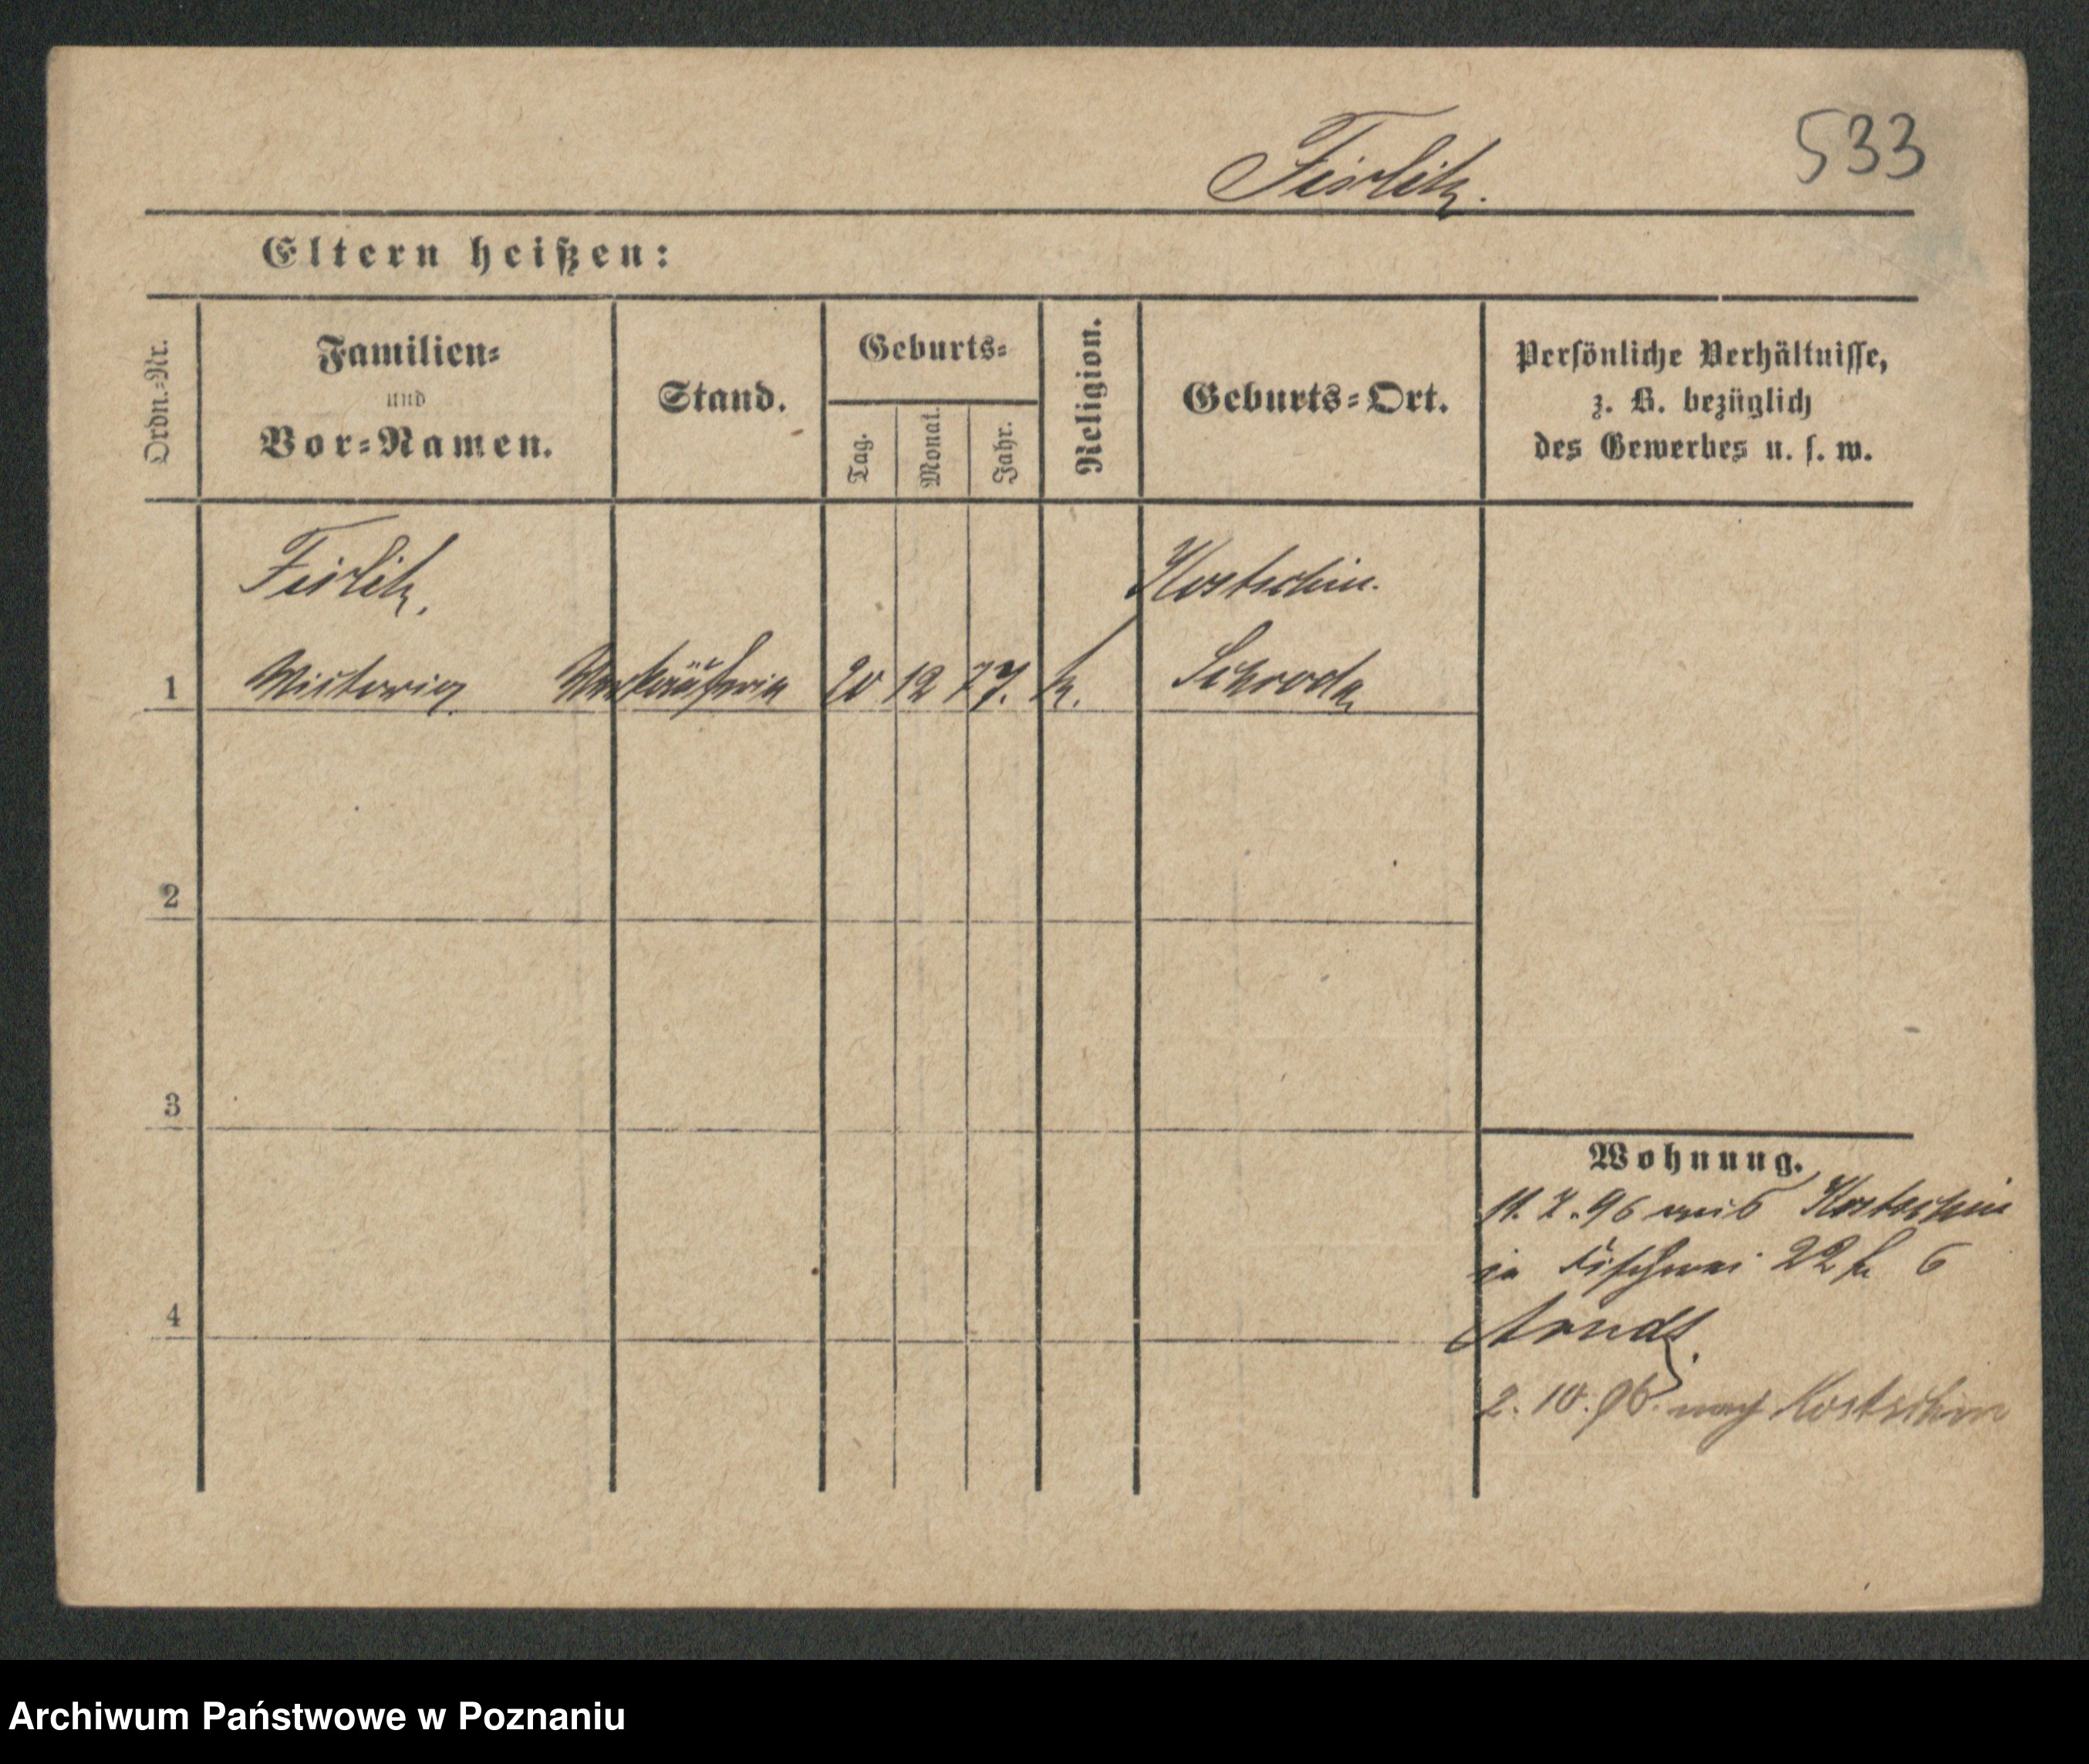 533
Firlik.
Eltern heißen:
Ordn.=Nr.
Familien=
und
Vor=Namen.
Stand.
Geburts=
Tag.
Monat.
Jahr.
Religion.
Geburts=Ort.
Persönliche Verhältnisse,
z. B. bezüglich
des Gewerbes u. s. w.
Firlik.
Kostschin.
1 Victoria Verkäuferin 20 12 77. k. Schroda
2
3
4
Wohnung.
11. 7. 96 aus Kostschin
in Fischerei 22 b
Arndt.
2. 10. 96. nach Kostschin
Archiwum Państwowe w Poznaniu